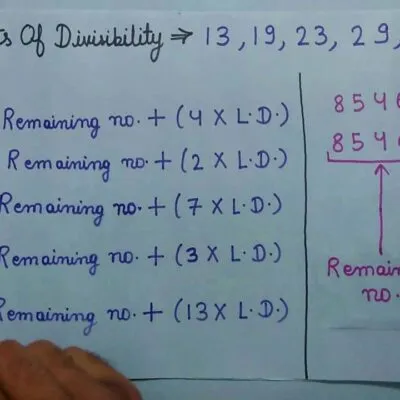 Of Divisibility ⇒ 13, 19, 23, 29,
Remaining no. + (4 X L.D.)
Remaining no. + (2 X L.D.)
Remaining no. + (7 X L.D.)
Remaining no. + (3 X L.D.)
Remaining no. + (13 X L.D.)
854
854
no.